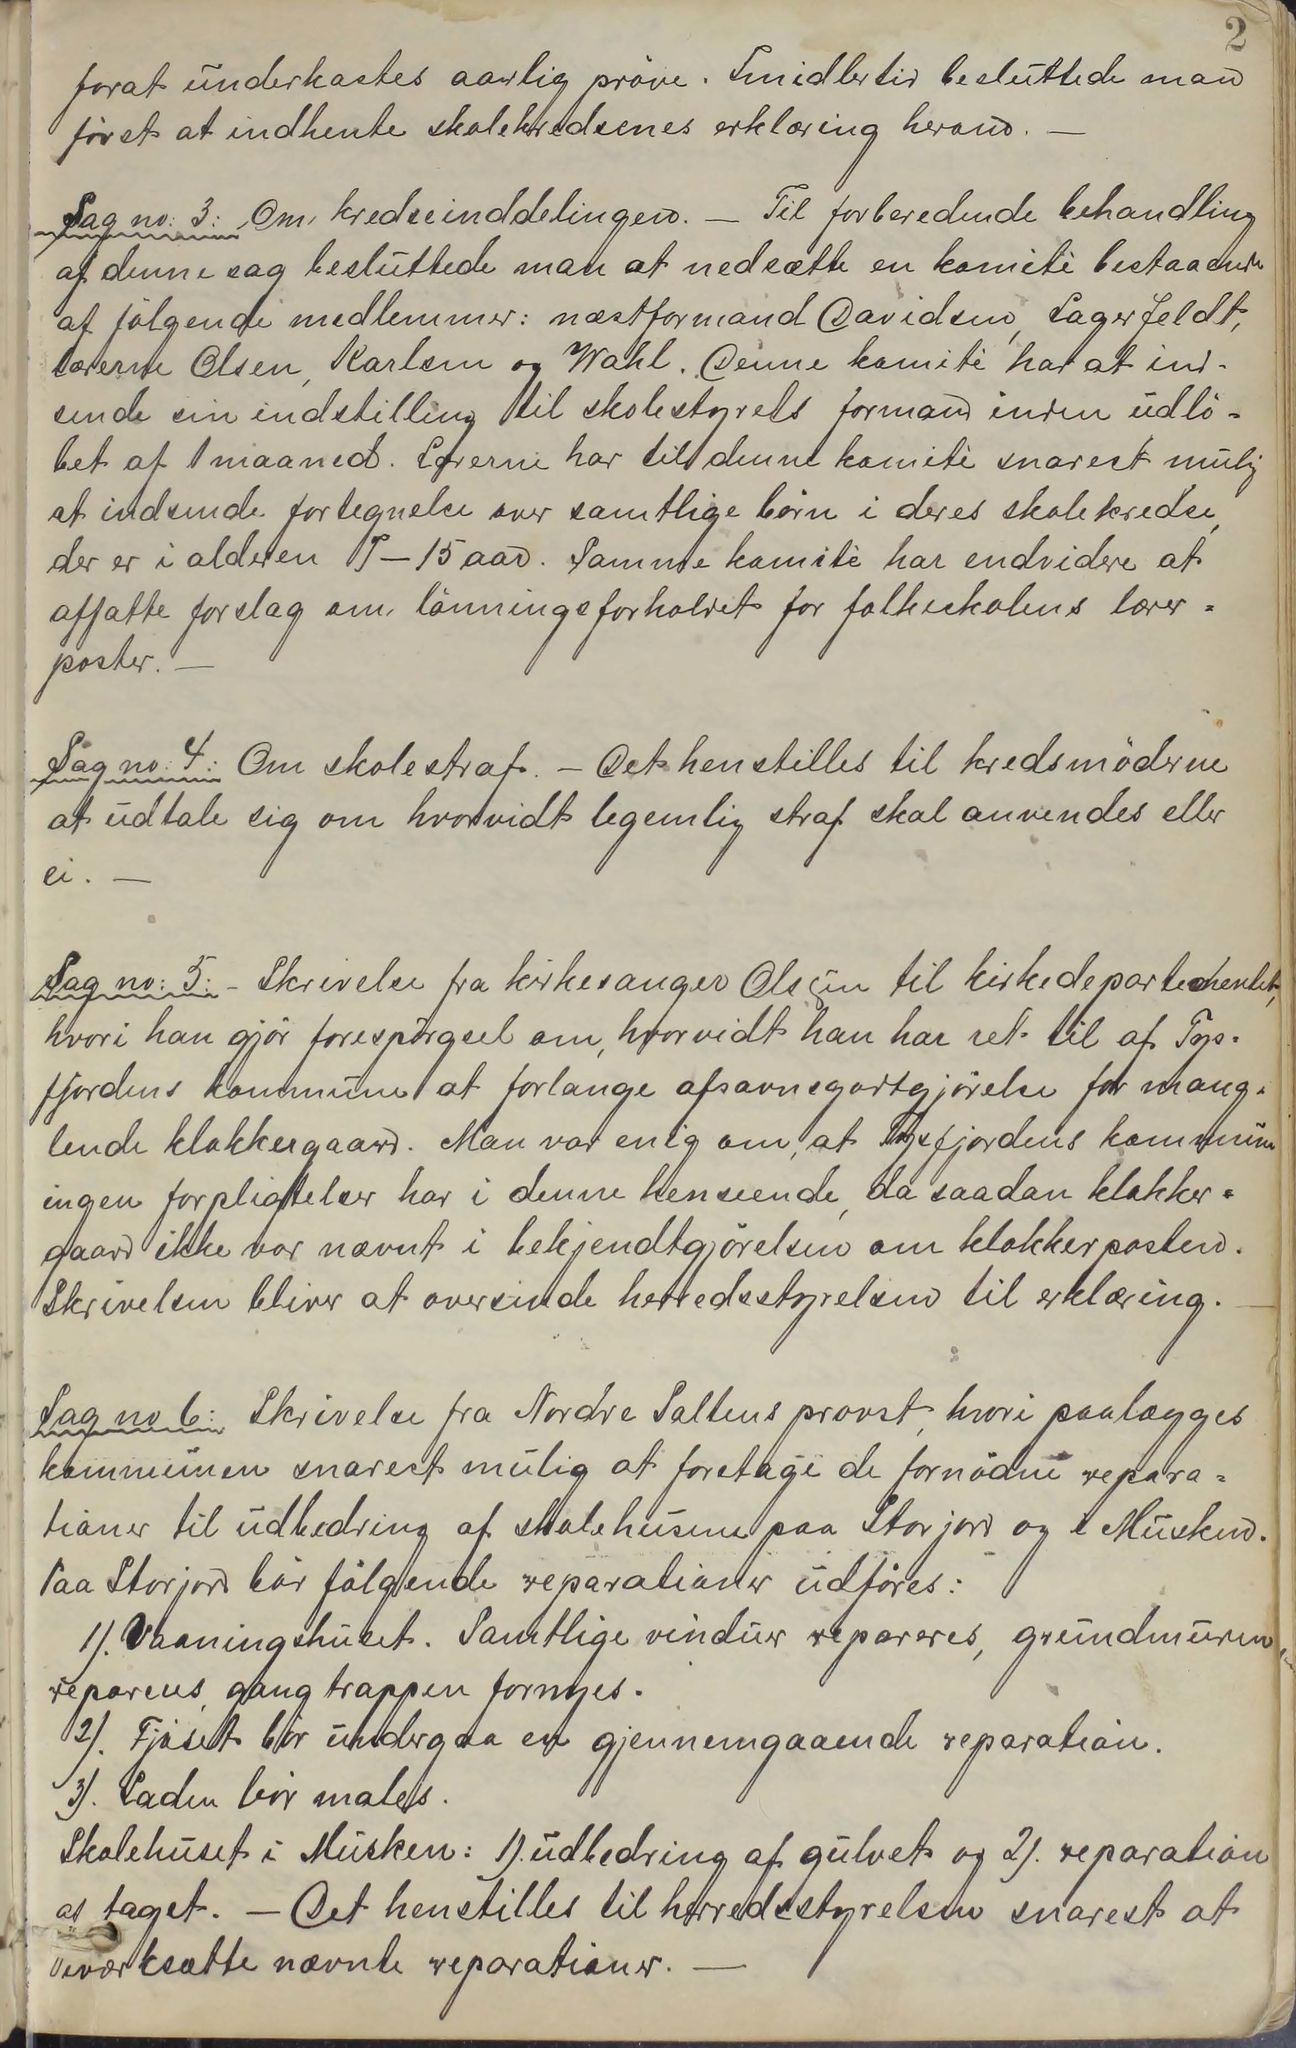 2
forat underkastes aarlig prøve. Imidlertid besluttede man
først at indhente skolekredsenes erklæring herom. —
Sag no: 3: Om kredsinddelingen. — Til forberedende behandling
af denne sag besluttede man at nedsætte en komité bestaaende
af følgende medlemmer: næstformand Davidsen, Lagerfeldt,
lærerne Olsen, Karlsen og Wahl. Denne komité har at ind-
sende sin indstilling til skolestyrets formand inden udlö-
bet af 1 maaned. Lærerne har til denne komité snarest mulig
at indsende fortegnelse over samtlige børn i deres skolekredse,
der er i alderen 7—15 aar. Samme komité har endvidere at
affatte forslag om lønningsforholdet for folkeskolens lærer-
poster. —
Sag no: 4: Om skolestraf. — Det henstilles til kredsmøderne
at udtale sig om hvorvidt legemlig straf skal anvendes eller
ei. —
Sag no: 5: - Skrivelse fra kirkesanger Olsen til kirkedepartementet,
hvori han gjör forespørgsel om, hvorvidt han har ret til af Tys-
fjordens kommune at forlange afsavnsgodtgjörelse for mang-
lende klokkergaard. Man var enig om, at Tysfjordens kommune
ingen forpligtelser har i denne henseende, da saadan klokker-
gaard ikke var nævnt i bekjendtgjörelsen om klokkerposten.
Skrivelsen bliver at oversende herredsstyrelsen til erklæring. —
Sag no 6: Skrivelse fra Nordre Saltens provst, hvori paalægges
kommunen snarest mulig at foretage de fornödne repara-
tioner til udbedring af skolehusene paa Storjord og i Musken.
Paa Storjord bör fölgende reparationer udföres:
1). Vaaningshuset. Samtlige vinduer repareres, grundmuren
repareres, gangtrappen fornyes.
2). Fjöset bör undergaa en gjennemgaaende reparation.
3). Laden bör males.
Skolehuset i Musken: 1). udbedring af gulvet og 2). reparation
af taget. — Det henstilles til herredsstyrelsen snarest at
iværksætte nævnte reparationer. —